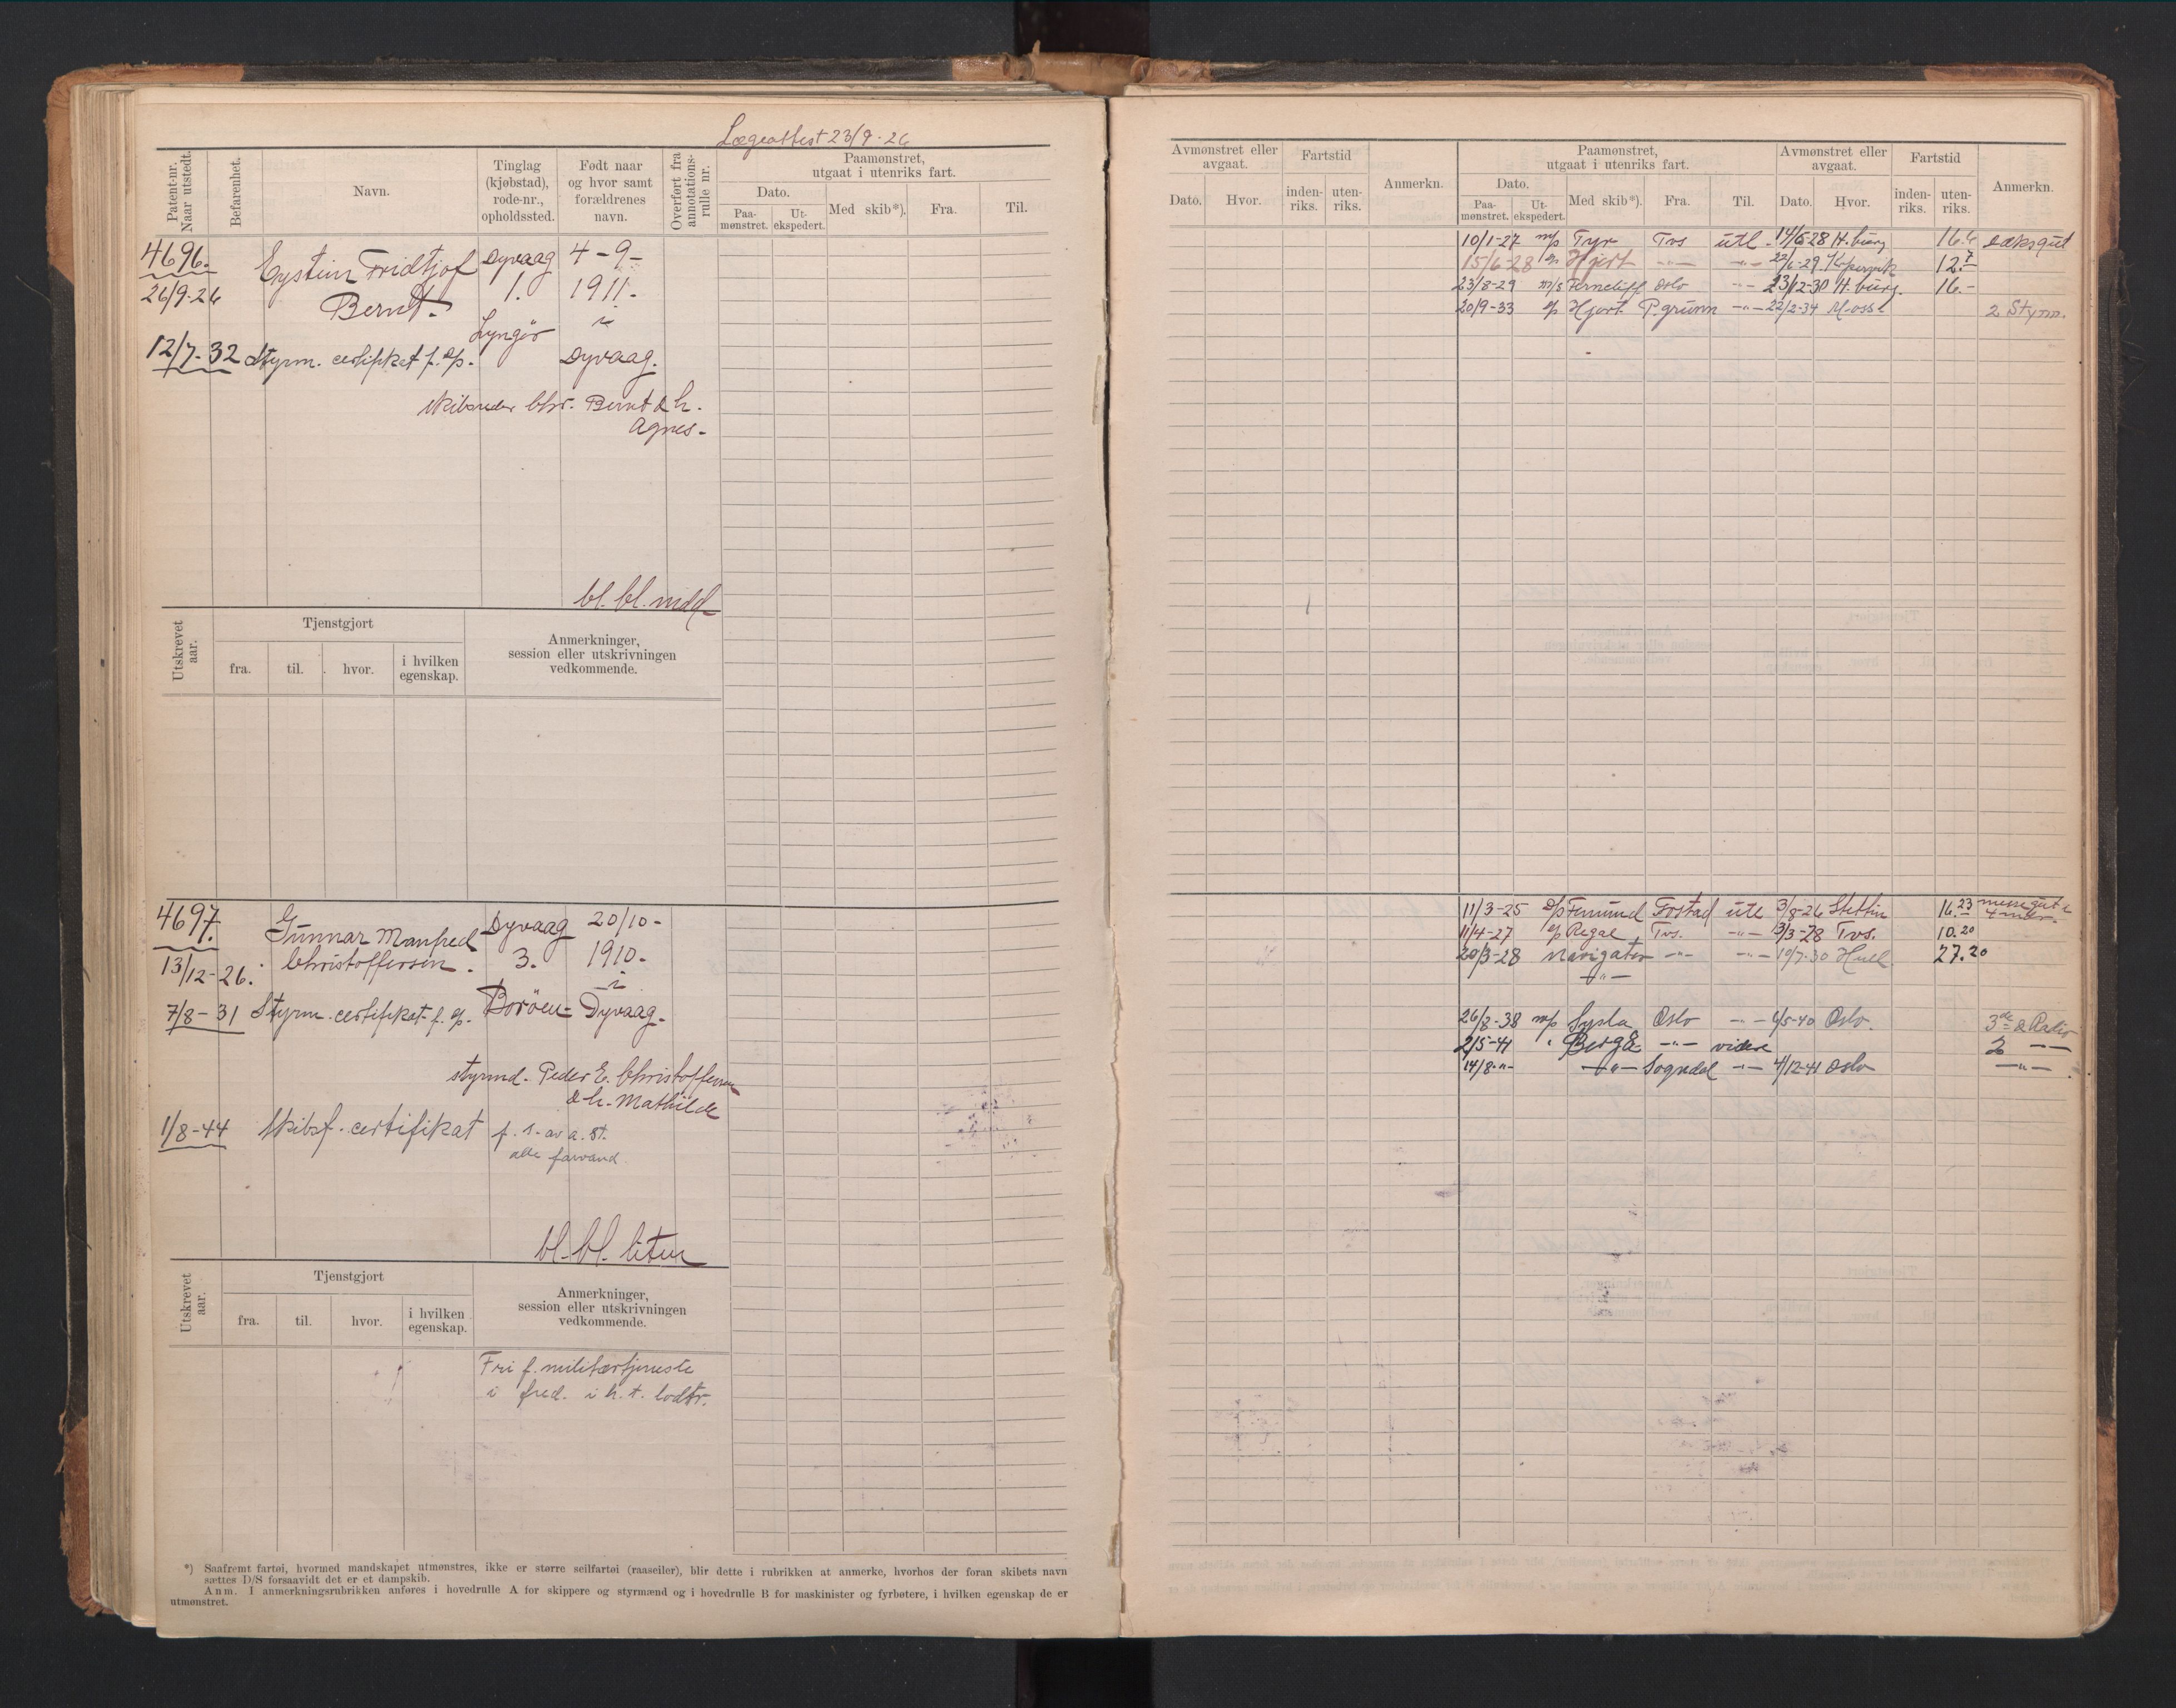 Lægeattest 23/9-26
Patent-nr. Naar utstedt.
Befarenhet.
Navn.
Tinglag (kjøbstad), rode-nr., opholdssted.
Født naar og hvor samt forældrenes navn.
Overført fra annotations-rulle nr.
Paamønstret, utgaat i utenriks fart.
Dato.
Paa-mønstret.
Ut-ekspedert.
Med skib*).
Fra.
Til.
4696.
Eystein Fridtjof
Dyvaag
4-9-
26/9-26
Bernt.
1.
1911.
Lyngør
i
12/7-32 Styrm. certifikat f. d/s.
Dyvaag.
skibsreder Chr. Bernt & h.
Agnes-
bl. bl.
Utskrevet aar.
Tjenstgjort
fra.
til.
hvor.
i hvilken egenskap.
Anmerkninger,
session eller utskrivningen
vedkommende.
4697.
Gunnar Manfred
Dyvaag
20/10-
13/12-26.
Christoffersen.
3.
1910-
i
7/8-31 Styrm. certifikat f. d/s.
Borøen-
Dyvaag.
styrmd. Peder E. Christoffersen
& h. Mathilde
1/8-44 Skibsf. certifikat f. s- av a. st.
alle farvand
bl. bl.
Utskrevet aar.
Tjenstgjort
fra.
til.
hvor.
i hvilken egenskap.
Anmerkninger,
session eller utskrivningen
vedkommende.
Fri f. militærtjeneste
i fred. i h. t. lodtr.
*) Saafremt fartøi, hvormed mandskapet utmønstres, ikke er større seilfartøi (raaseiler), blir dette i rubrikken at anmerke, hvorhos der foran skibets navn
sættes D/S forsaavidt det er et dampskib.
Anm. I anmerkningsrubrikken anføres i hovedrulle A for skippere og styrmænd og i hovedrulle B for maskinister og fyrbøtere, i hvilken egenskap de er
utmønstret.
Avmønstret eller avgaat.
Fartstid
Dato.
Hvor.
inden-riks.
uten-riks.
Anmerkn.
Paamønstret, utgaat i utenriks fart.
Dato.
Paa-mønstret.
Ut-ekspedert.
Med skib*).
Fra.
Til.
Avmønstret eller avgaat.
Dato.
Hvor.
Fartstid
inden-riks.
uten-riks.
Anmerkn.
10/1-27 m/s Tyr Tvs utl. 14/5-28 H.burg dæksgut
15/6-28 d/s Hjort -"- -"- 22/6-29 12.7
23/8-29 m/s Ferncliff Oslo -"- 23/12-30 H.burg. 16.-
20/9-33 d/s Hjort P.grunn -"- 22/2-34 Moss 2 Styrm.
11/3-25 d/s Femund Fostad utl 3/8-26 Stettin 16.23
11/4-27 d/s Regal Tvs. -"- 3/3-28 Tvs. 10.20
20/3-28 Navigator -"- -"- 10/7-30 Hull 27.20
-"-
26/8-38 m/s Sysla Oslo -"- 6/5-40 Oslo. 3de
2/5-41 " -"- videre 2 -"-
14/8-"- -"- Sogndal -"- 4/12-41 Oslo -"-